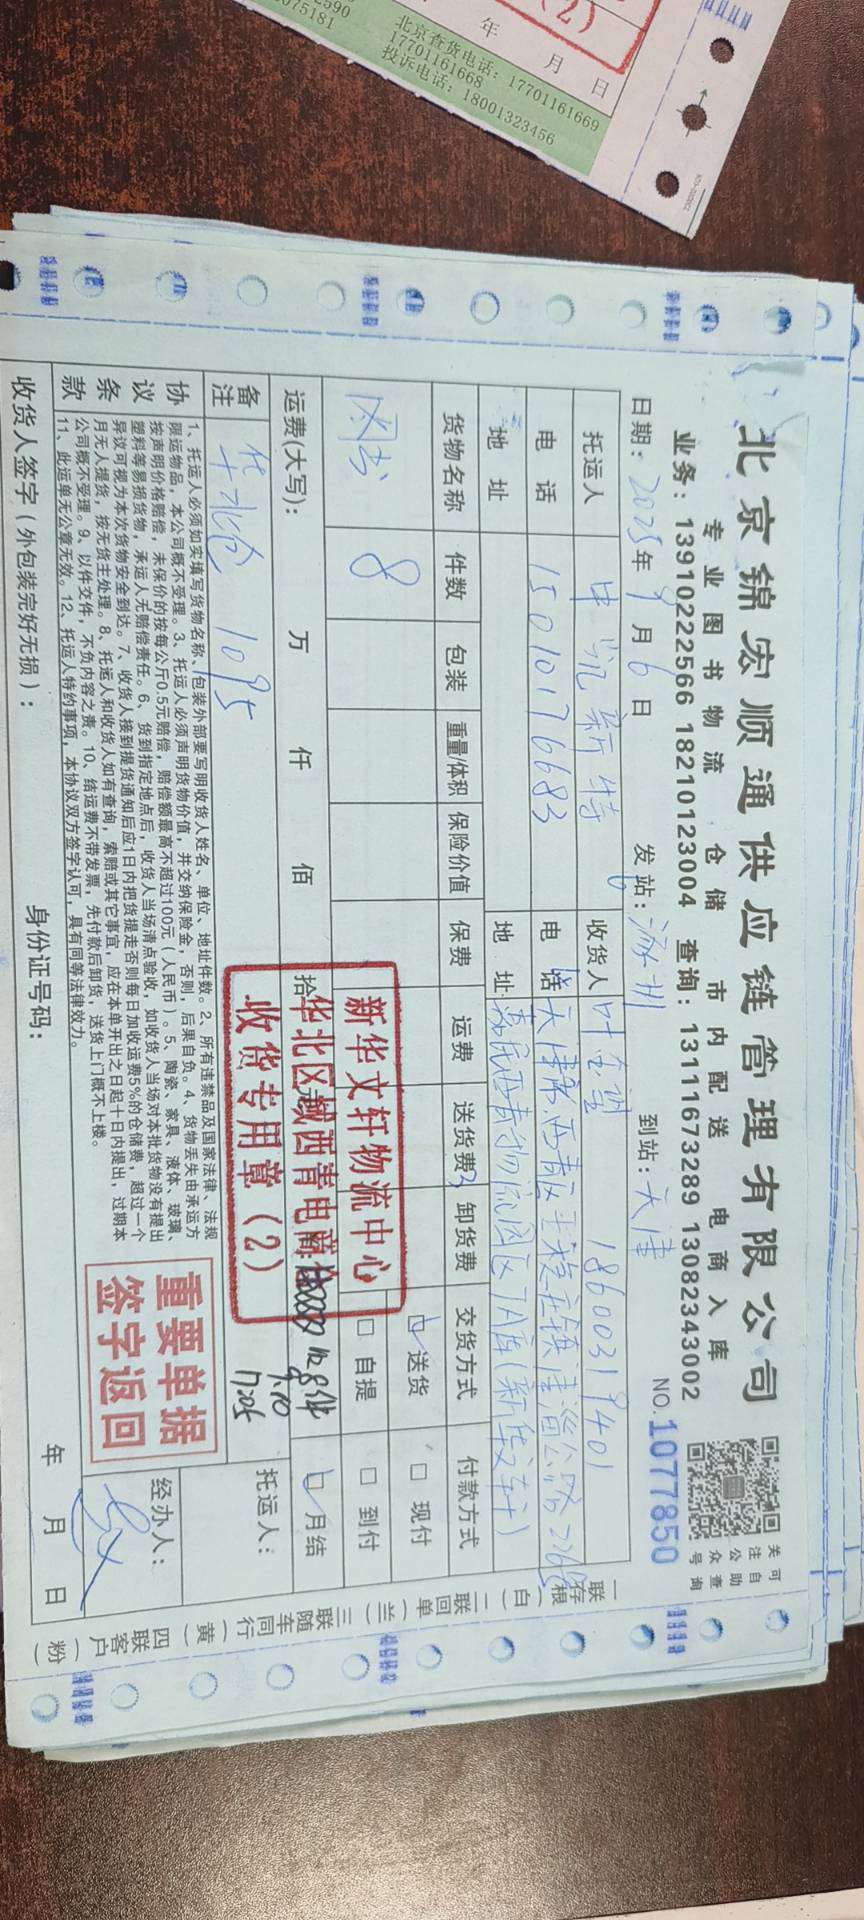 北京锦宏顺通供应链管理有限公司
专业图书物流 仓储 市内配送 电商入库
业务：13910222566 18210123004 查询：13111673289 13082343002
可自助查询
关注公众号
日期：2025年9月6日 发站： 到站：天津 NO.1077850
托运人 中凯新特 收货人 18600319401
电话 15010176683 电话 天津市西青区王稳庄镇津淄公路226号
地址 地址 嘉民西青物流园区7A库(新华文轩)
货物名称 件数 包装 重量/体积 保险价值 保费 运费 送货费 卸货费 交货方式 付款方式
图书 8 送货 □现付
□自提 □到付
运费(大写)： 万 仟 佰 拾 元 月结
新华文轩物流中心
华北区域西青电商仓
收货专用章（2）
收8件
9.10
1205
备注 华北仓 1095
托运人：
协议条款
1、托运人必须如实填写货物名称、包装外部要写明收货人姓名、单位、地址件数。2、所有违禁品及国家法律、法规
限运物品，本公司概不受理。3、托运人必须声明货物价值，并交纳保险金，否则，后果自负。4、货物丢失由承运方
按声明价格赔偿，未保价的按每公斤0.5元赔偿，赔偿额最高不超过100元（人民币）。5、陶瓷、家具、液体、玻璃、
塑料等易损货物，承运人无赔偿责任。6、货到指定地点后，收货人当场清点验收，如收货人当场对本批货物没有提出
异议可视为本次货物安全到达。7、收货人接到提货通知后应1日内把货提走否则每日加收运费5%的仓储费，超过一个
月无人提货，按无货主处理。8、托运人和收货人如有查询，索赔或其它事宜，应在本单开出之日起十日内提出，过期本
公司概不受理。9、以件交件，不负内容之责。10、结运费不带发票，先付款后卸货，送货上门概不上楼。
11、此运单无公章无效。12、托运人特约事项，本协议双方签字认可，具有同等法律效力。
重要单据
签字返回
经办人：
收货人签字（外包装完好无损）： 身份证号码： 年 月 日
一联存根(白) 二联回单(兰) 三联随车同行(黄) 四联客户(粉)
（2）
年 月 日
北京查货电话：17701161669
17701161668
投诉电话：18001323456
2590
075181